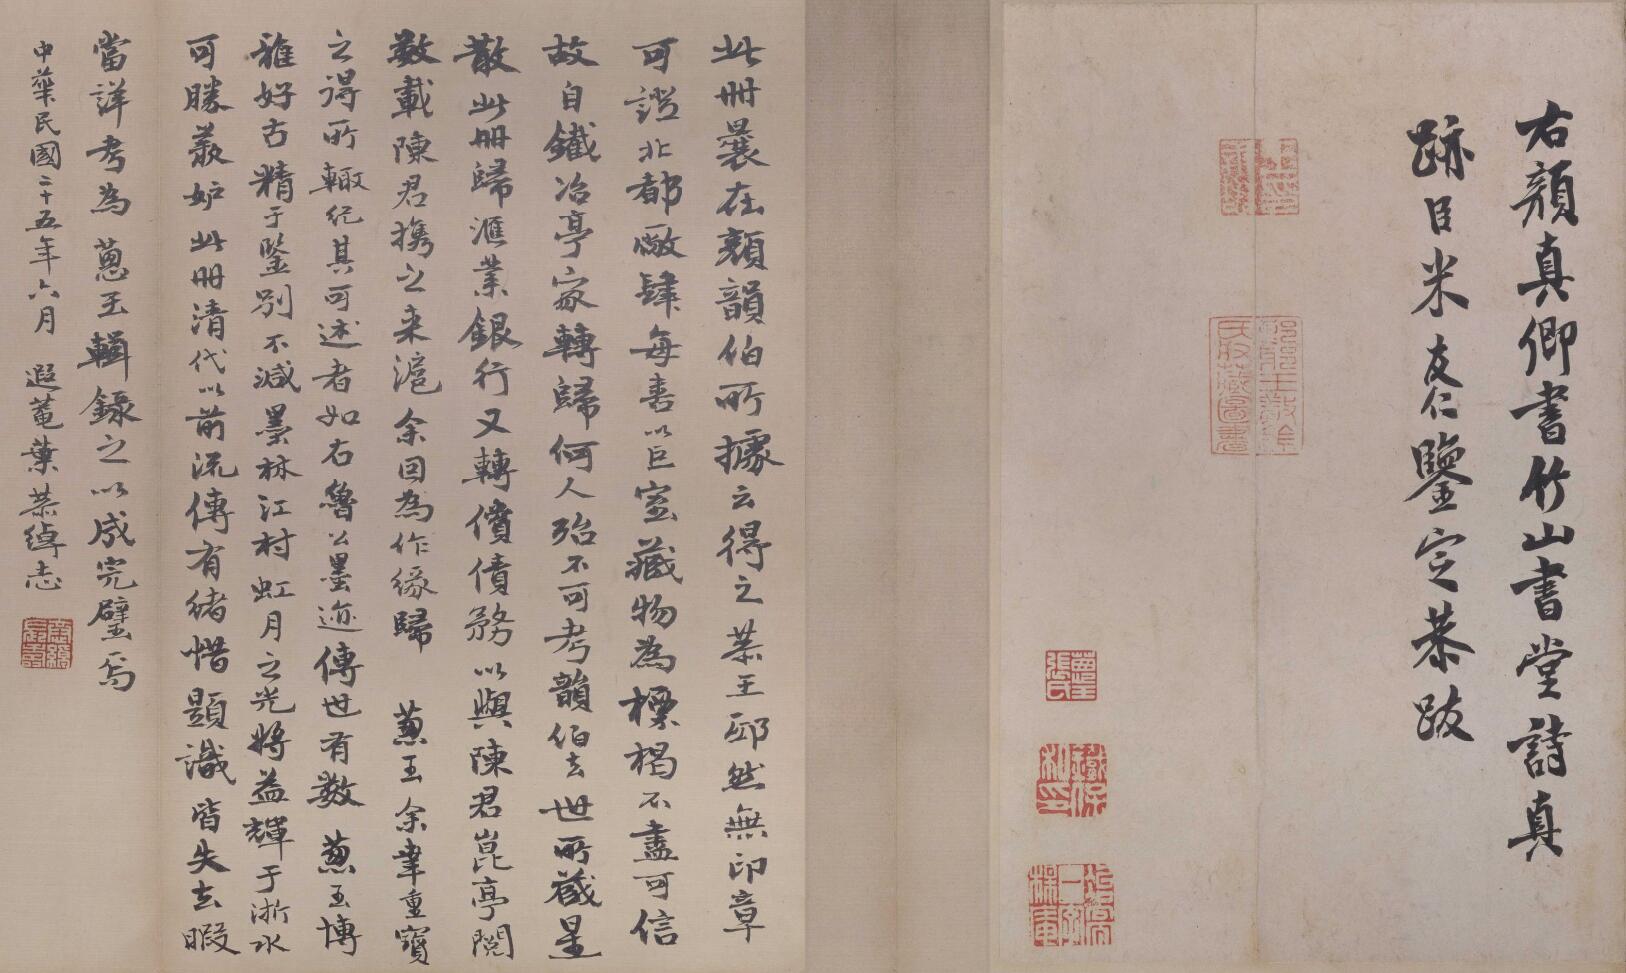 右顏真卿書竹山書堂詩真
跡臣米友仁鑒定恭跋
此冊曩在顏韻伯所據云得之恭王邸然無印章
可證北都廠肆每喜以巨室藏物為標榜不盡可信
故自鐵冶亭家轉歸何人殆不可考韻伯去世所藏星
散此冊歸滙業銀行又轉償債務以與陳君崑亭閱
數載陳君攜之来滬余因為作緣歸 蔥玉余韋重寶
之得所輙紀其可述者如右魯公墨迹傳世有數 蔥玉博
雅好古精于鑒別不減墨林江村虹月之光將益輝于浙水
可勝羨妒此冊清代以前流傳有緒惜題識皆失去暇
當詳考為 蔥玉輯錄之以成完璧焉
中華民國二十五年六月 遐菴葉恭綽志